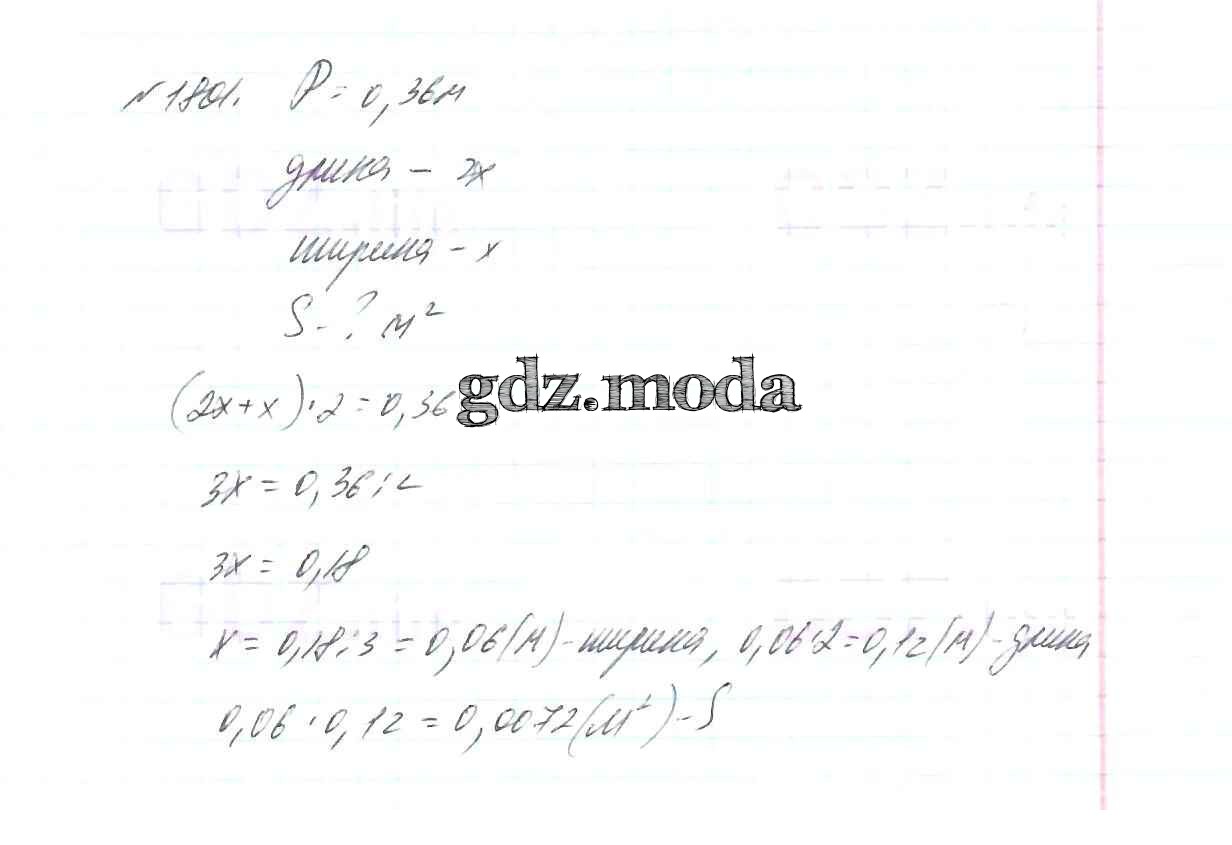 № 1801. P = 0,36 м
длина – 2x
ширина – x
S – ? м²
(2x + x) · 2 = 0,36
gdz.moda
3x = 0,36 : 2
3x = 0,18
x = 0,18 : 3 = 0,06 (м) – ширина, 0,06 · 2 = 0,12 (м) – длина
0,06 · 0,12 = 0,0072 (м²) – S